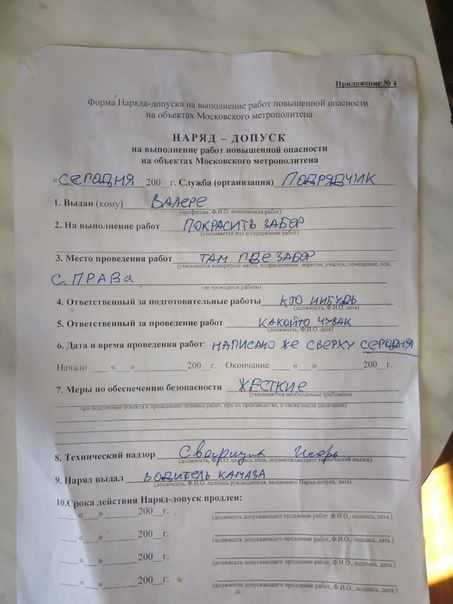 Приложение № 4
Форма Наряда-допуска на выполнение работ повышенной опасности
на объектах Московского метрополитена
НАРЯД – ДОПУСК
на выполнение работ повышенной опасности
на объектах Московского метрополитена
«СЕГОДНЯ 200 г. Служба (организация) ПОДРЯДЧИК
1. Выдан (кому) ВАЛЕРЕ
(профессия, Ф.И.О. исполнителя работ)
2. На выполнение работ ПОКРАСИТЬ ЗАБОР
(указывается вид и содержание работ)
3. Место проведения работ ТАМ ГДЕ ЗАБОР
(указывается конкретное место, подразделение, перегон, участок, помещение,
С ПРАВА
где проводятся работы)
4. Ответственный за подготовительные работы КТО НИБУДЬ
(должность, Ф.И.О. дата)
5. Ответственный за проведение работ КАКОЙТО ЧУВАК
(должность, Ф.И.О. дата)
6. Дата и время проведения работ: НАПИСАНО ЖЕ СВЕРХУ СЕГОДНЯ
Начало « » 200 г. Окончание « » 200 г.
7. Меры по обеспечению безопасности ЖЕСТКИЕ
(указываются необходимые требования
при подготовке объекта к проведению огневых работ, при их производстве, а также после окончания)
8. Технический надзор Сварщик Игорь
(должность, Ф.И.О. подпись лица, осуществляющего технический надзор)
9. Наряд выдал ВОДИТЕЛЬ КАМАЗА
(должность, Ф.И.О. подпись руководителя, выдавшего Наряд-допуск, дата)
10.Срока действия Наряд-допуск продлен:
« » 200 г.
(должность допускающего продление работ .Ф.И.О., подпись, дата.)
« » 200 г.
(должность допускающего продление работ ,Ф.И.О., подпись, дата.)
« » 200 г.
(должность допускающего продление работ ,Ф.И.О., подпись, дата.)
« » 200 г.
(должность допускающего продление работ, Ф.И.О., подпись, дата.)